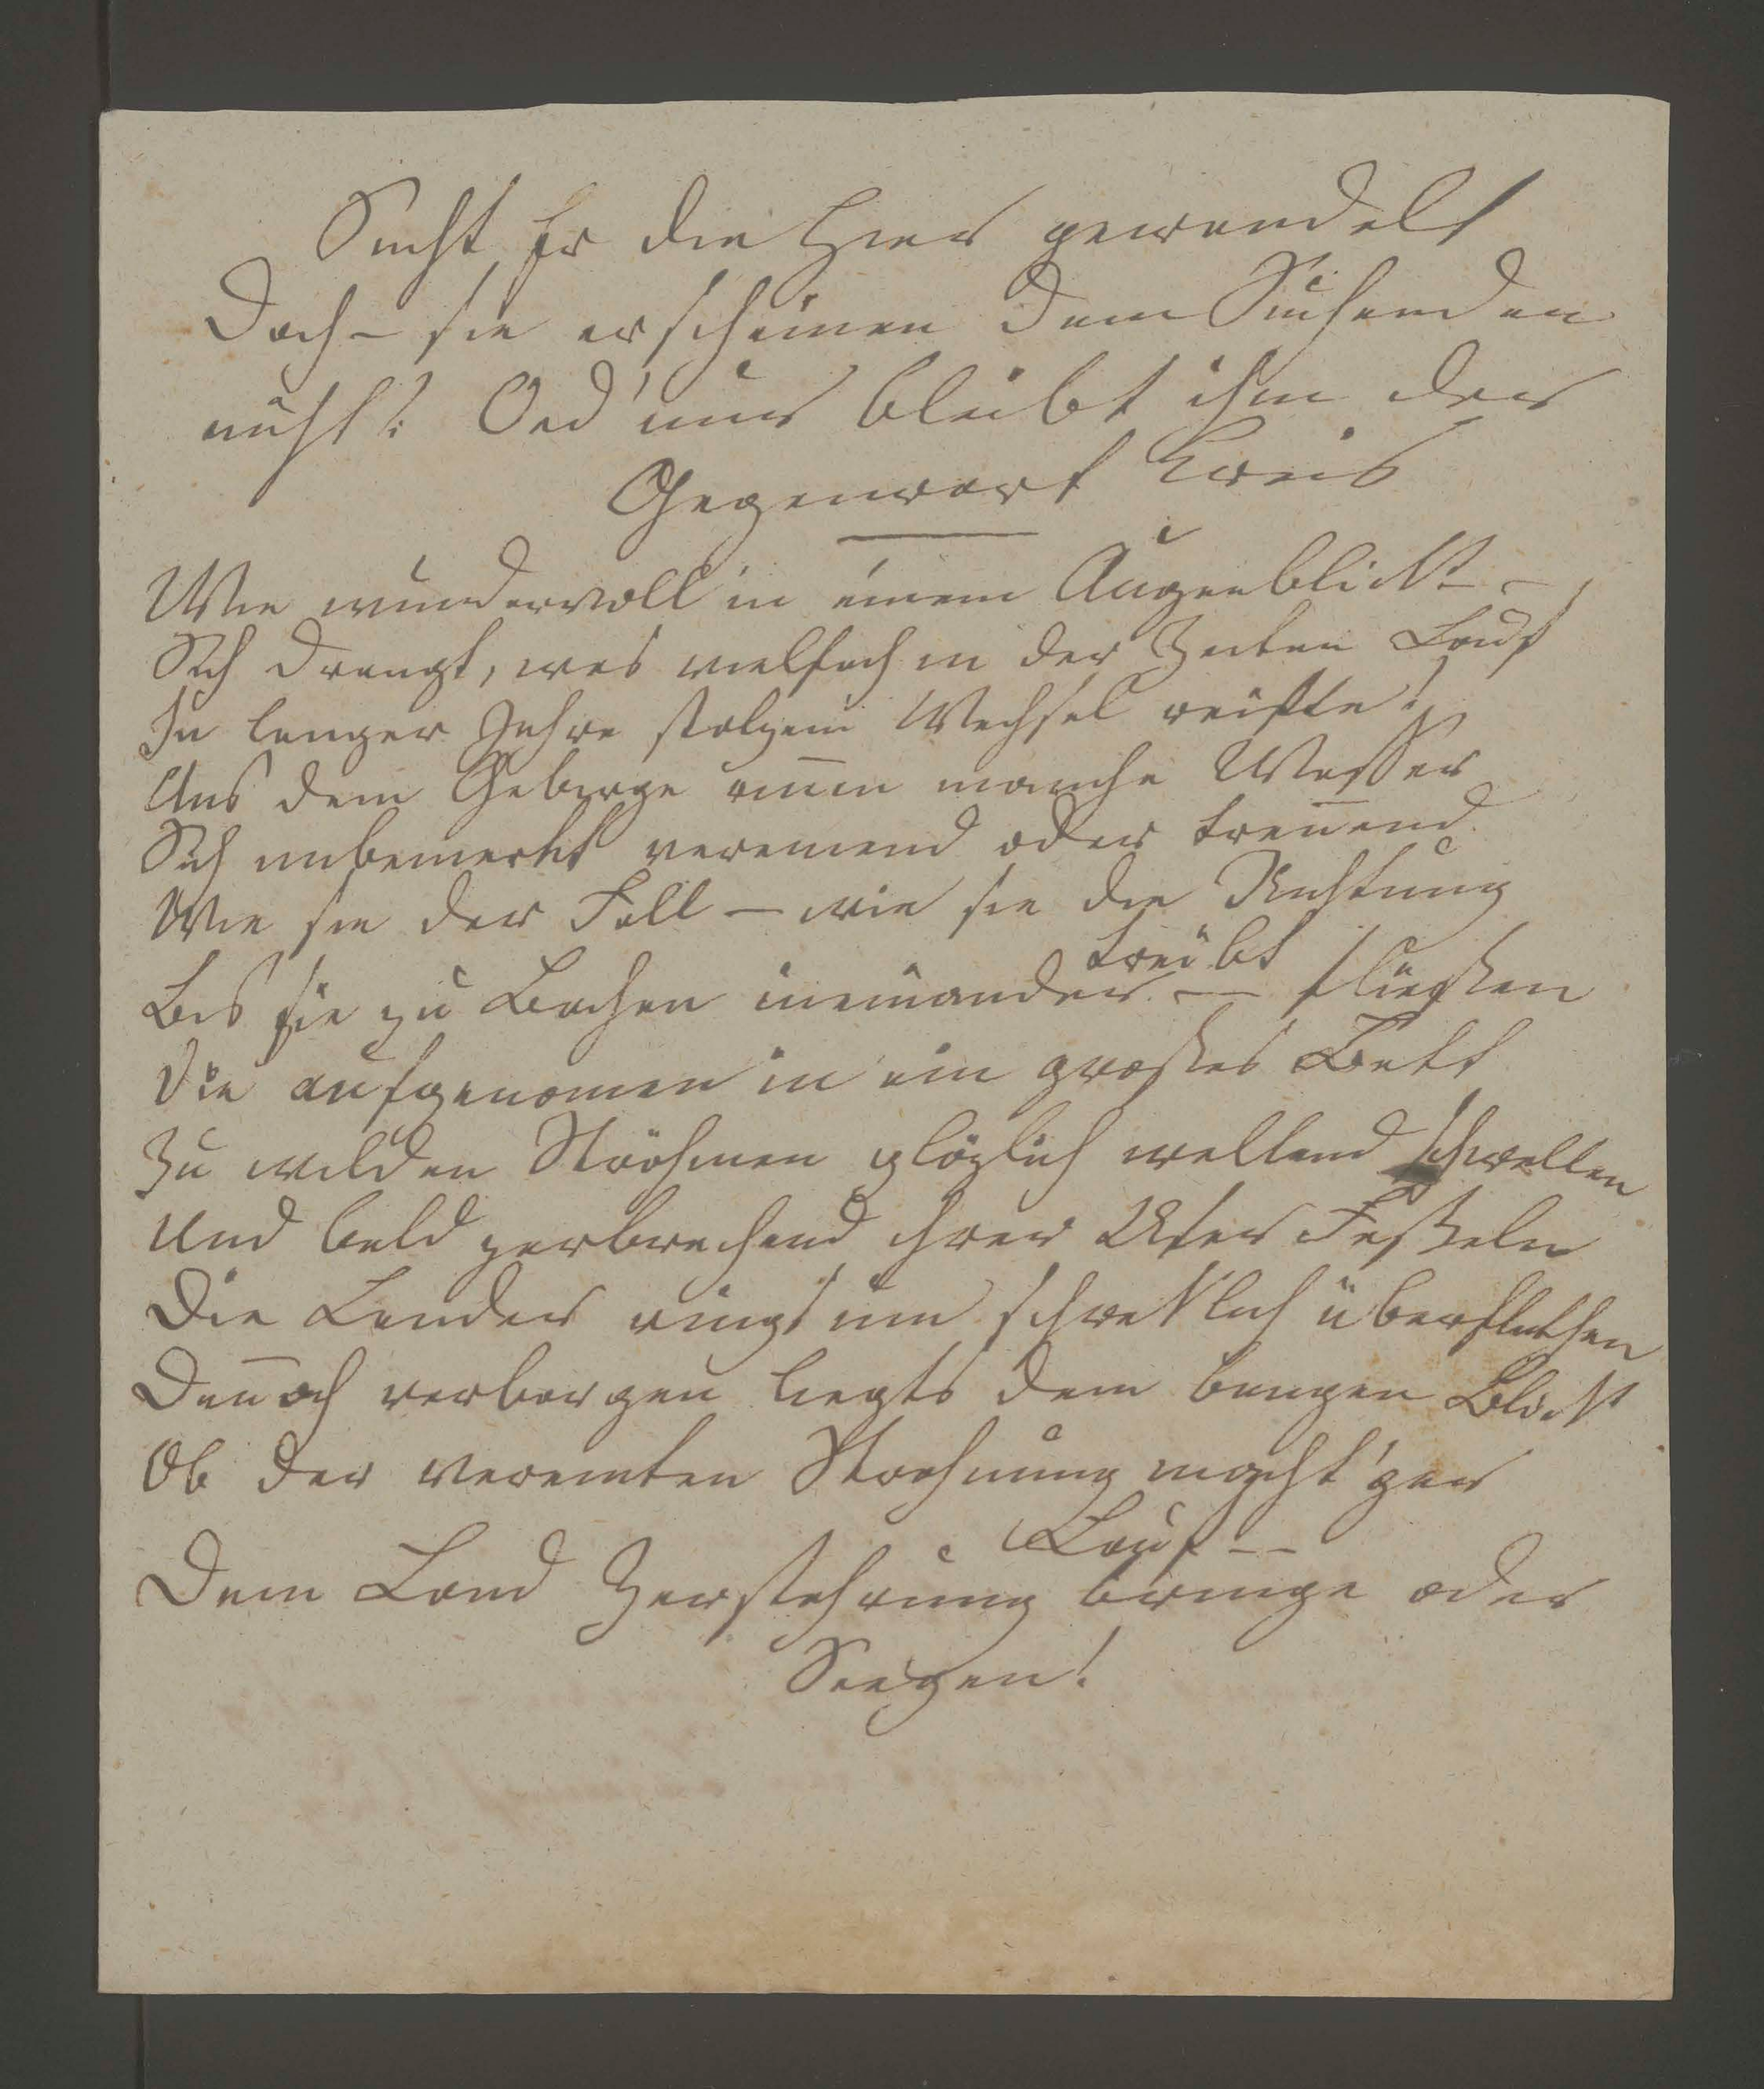 Sucht Er die hier gewandelt
Doch – sie erscheinen dem Suchenden
nicht! Oed' nur bleibt ihm der
Gegenwart Kreis
Wie wundervoll in einem Augenblickt –
Sich drangt, was vielfach in der Zeiten Lauf
In langer Jahre stolzem Wechsel reifte!
Aus dem Gebirge rinen manche Wasser
Sich unbemerkt vereinend oder trenend
Wie sie der Fall – wie sie die Richtung
treibt
Bis sie zu Bachen ineinander – fließen
Die aufgenomen in ein großes Bett
Zu wilden Ströhmen plözlich wallend schwellen
Und bald zerbrechend ihrer Ufer Feßeln
Die Lander rings um schreklich überfluthen
Denoch verborgen liegts dem bangen Blickt
Ob der vereinten Strohmung macht'ger
Lauf –
Dem Land Zerstohrung bringe oder
Seegen!